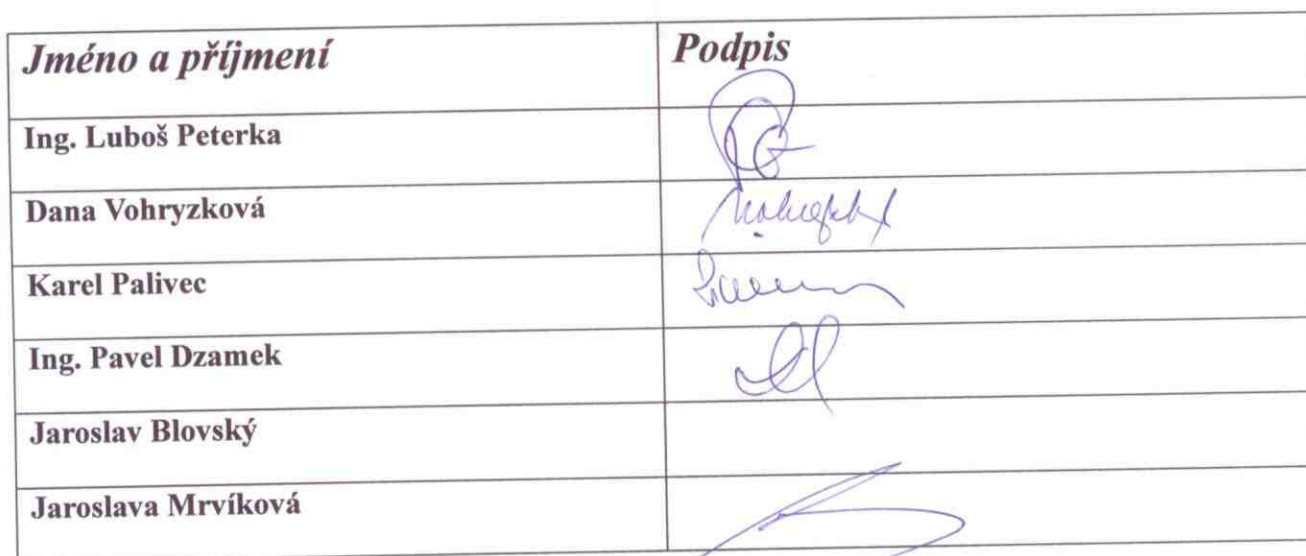 Jméno a příjmení Podpis
Ing. Luboš Peterka
Dana Vohryzková
Karel Palivec
Ing. Pavel Dzamek
Jaroslav Blovský
Jaroslava Mrvíková